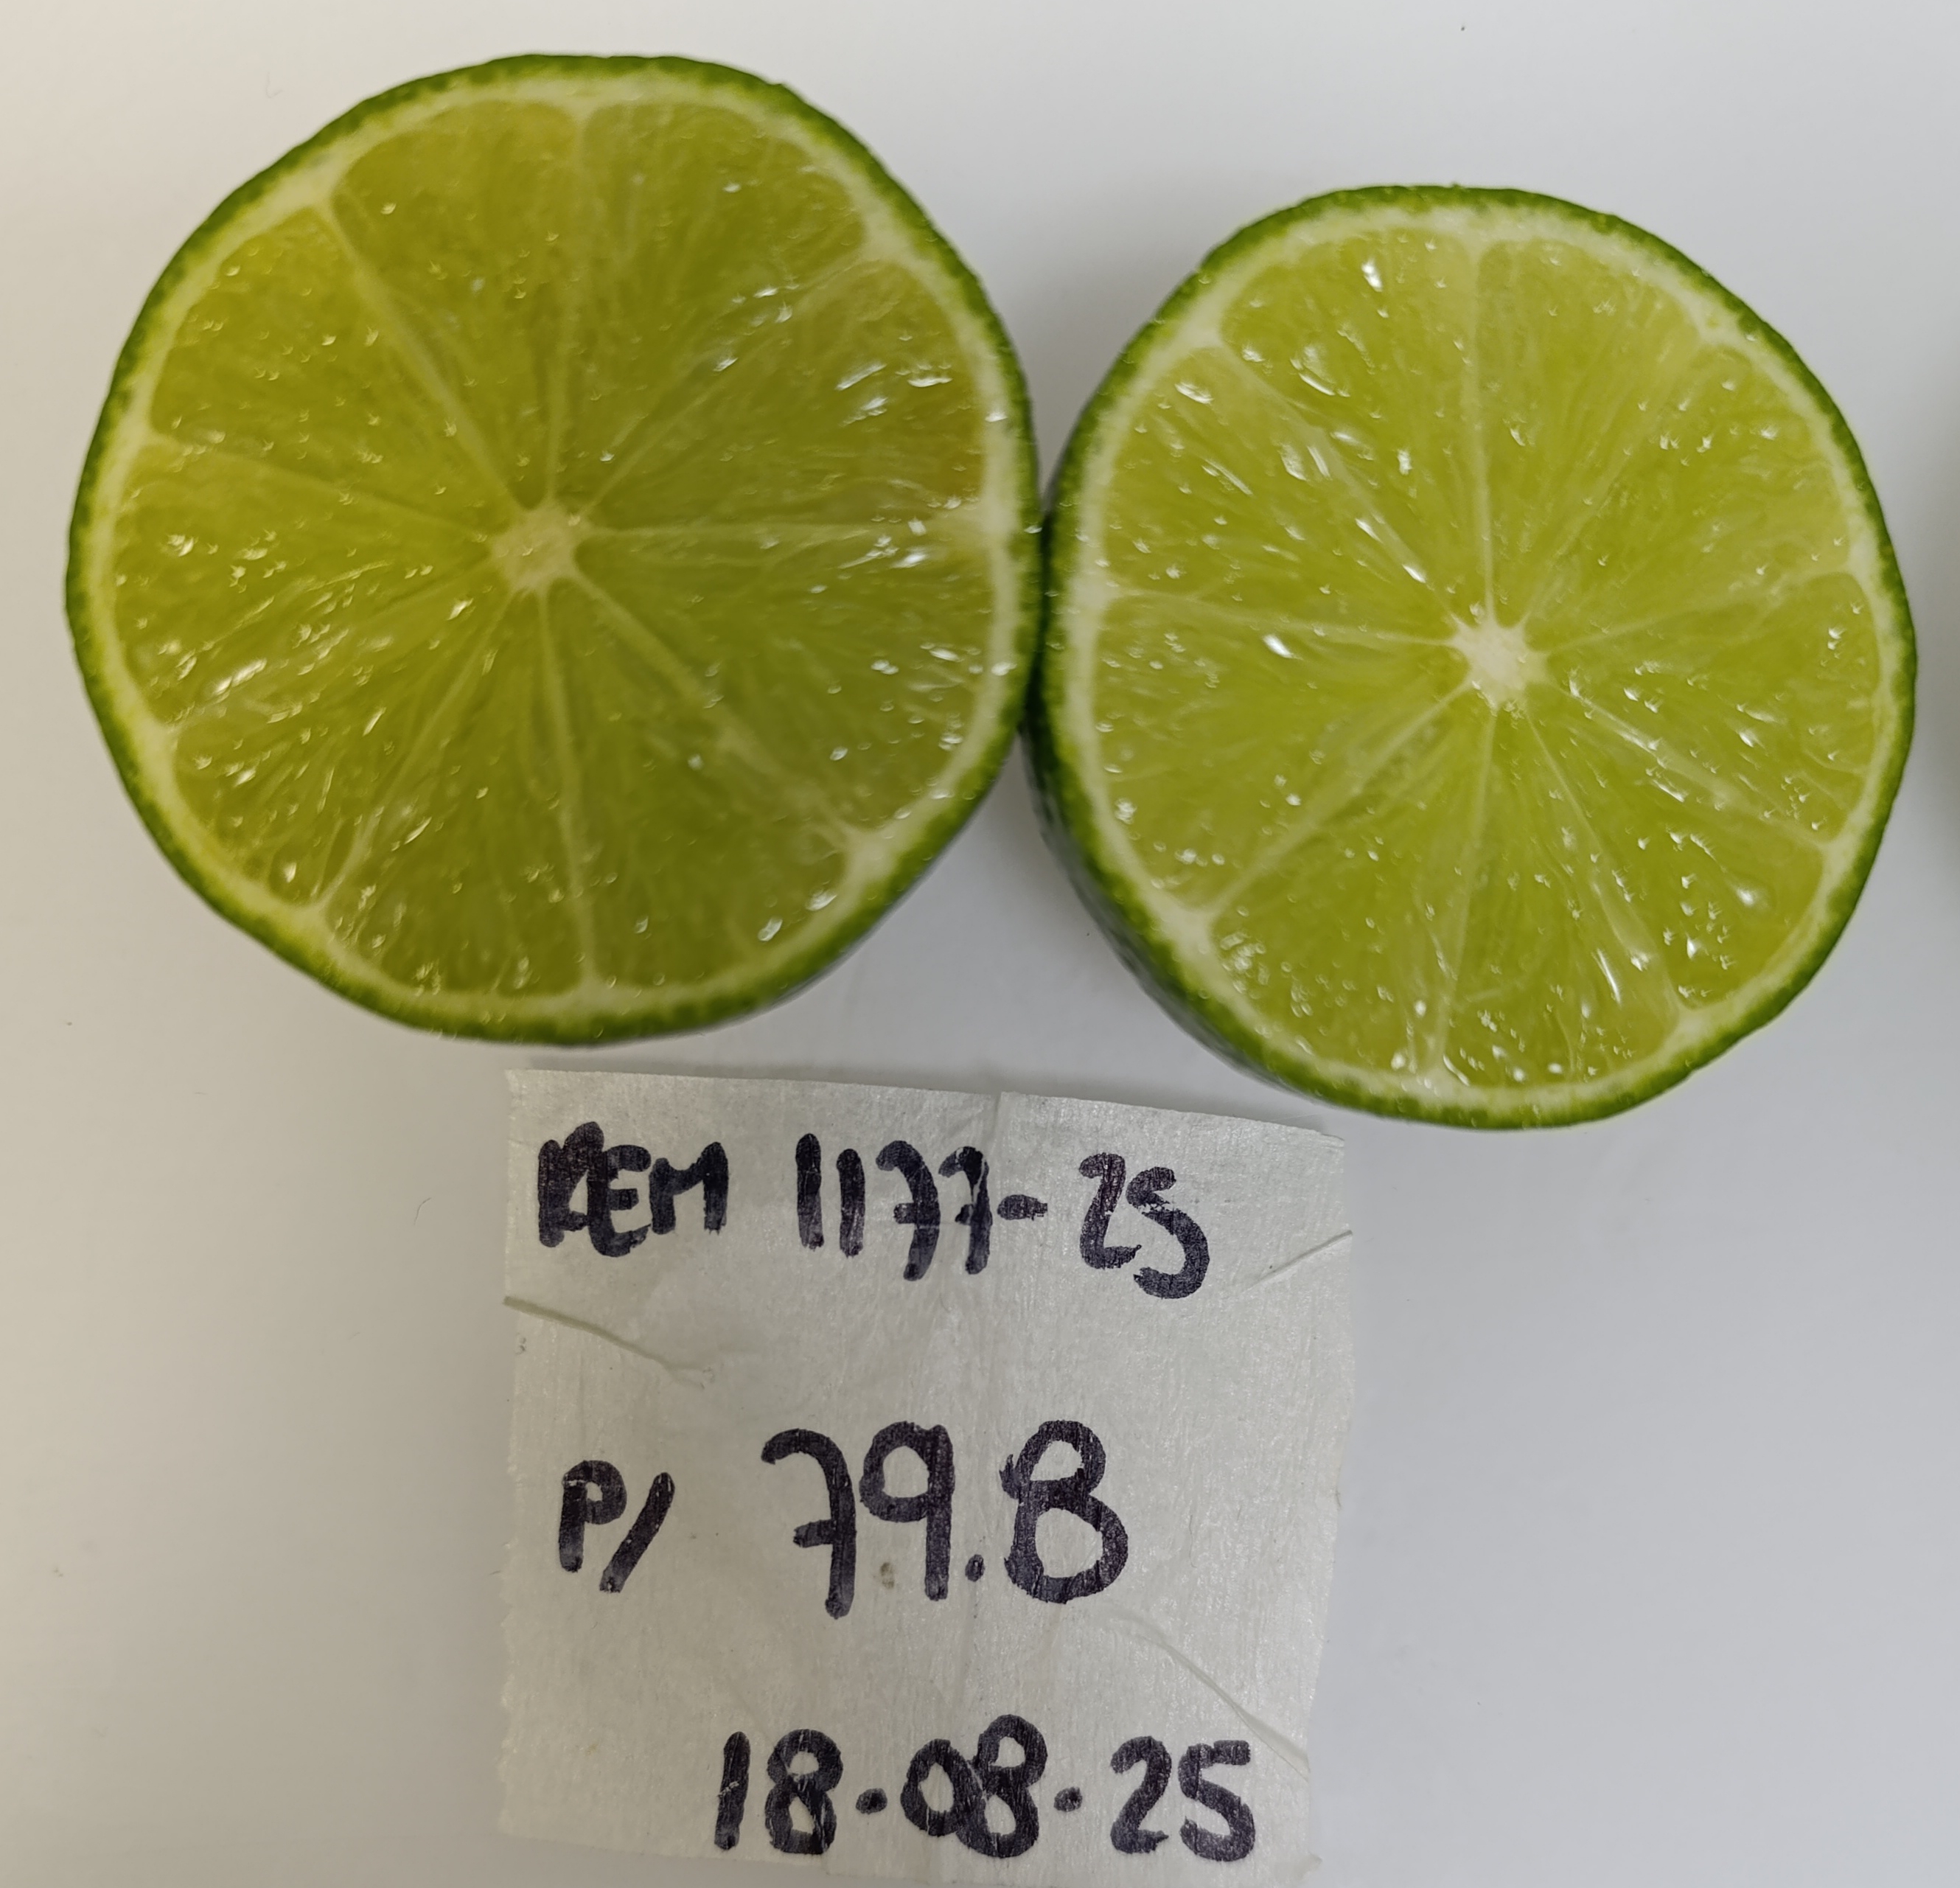 REM 1177-25
P/ 79.8
18-08-25